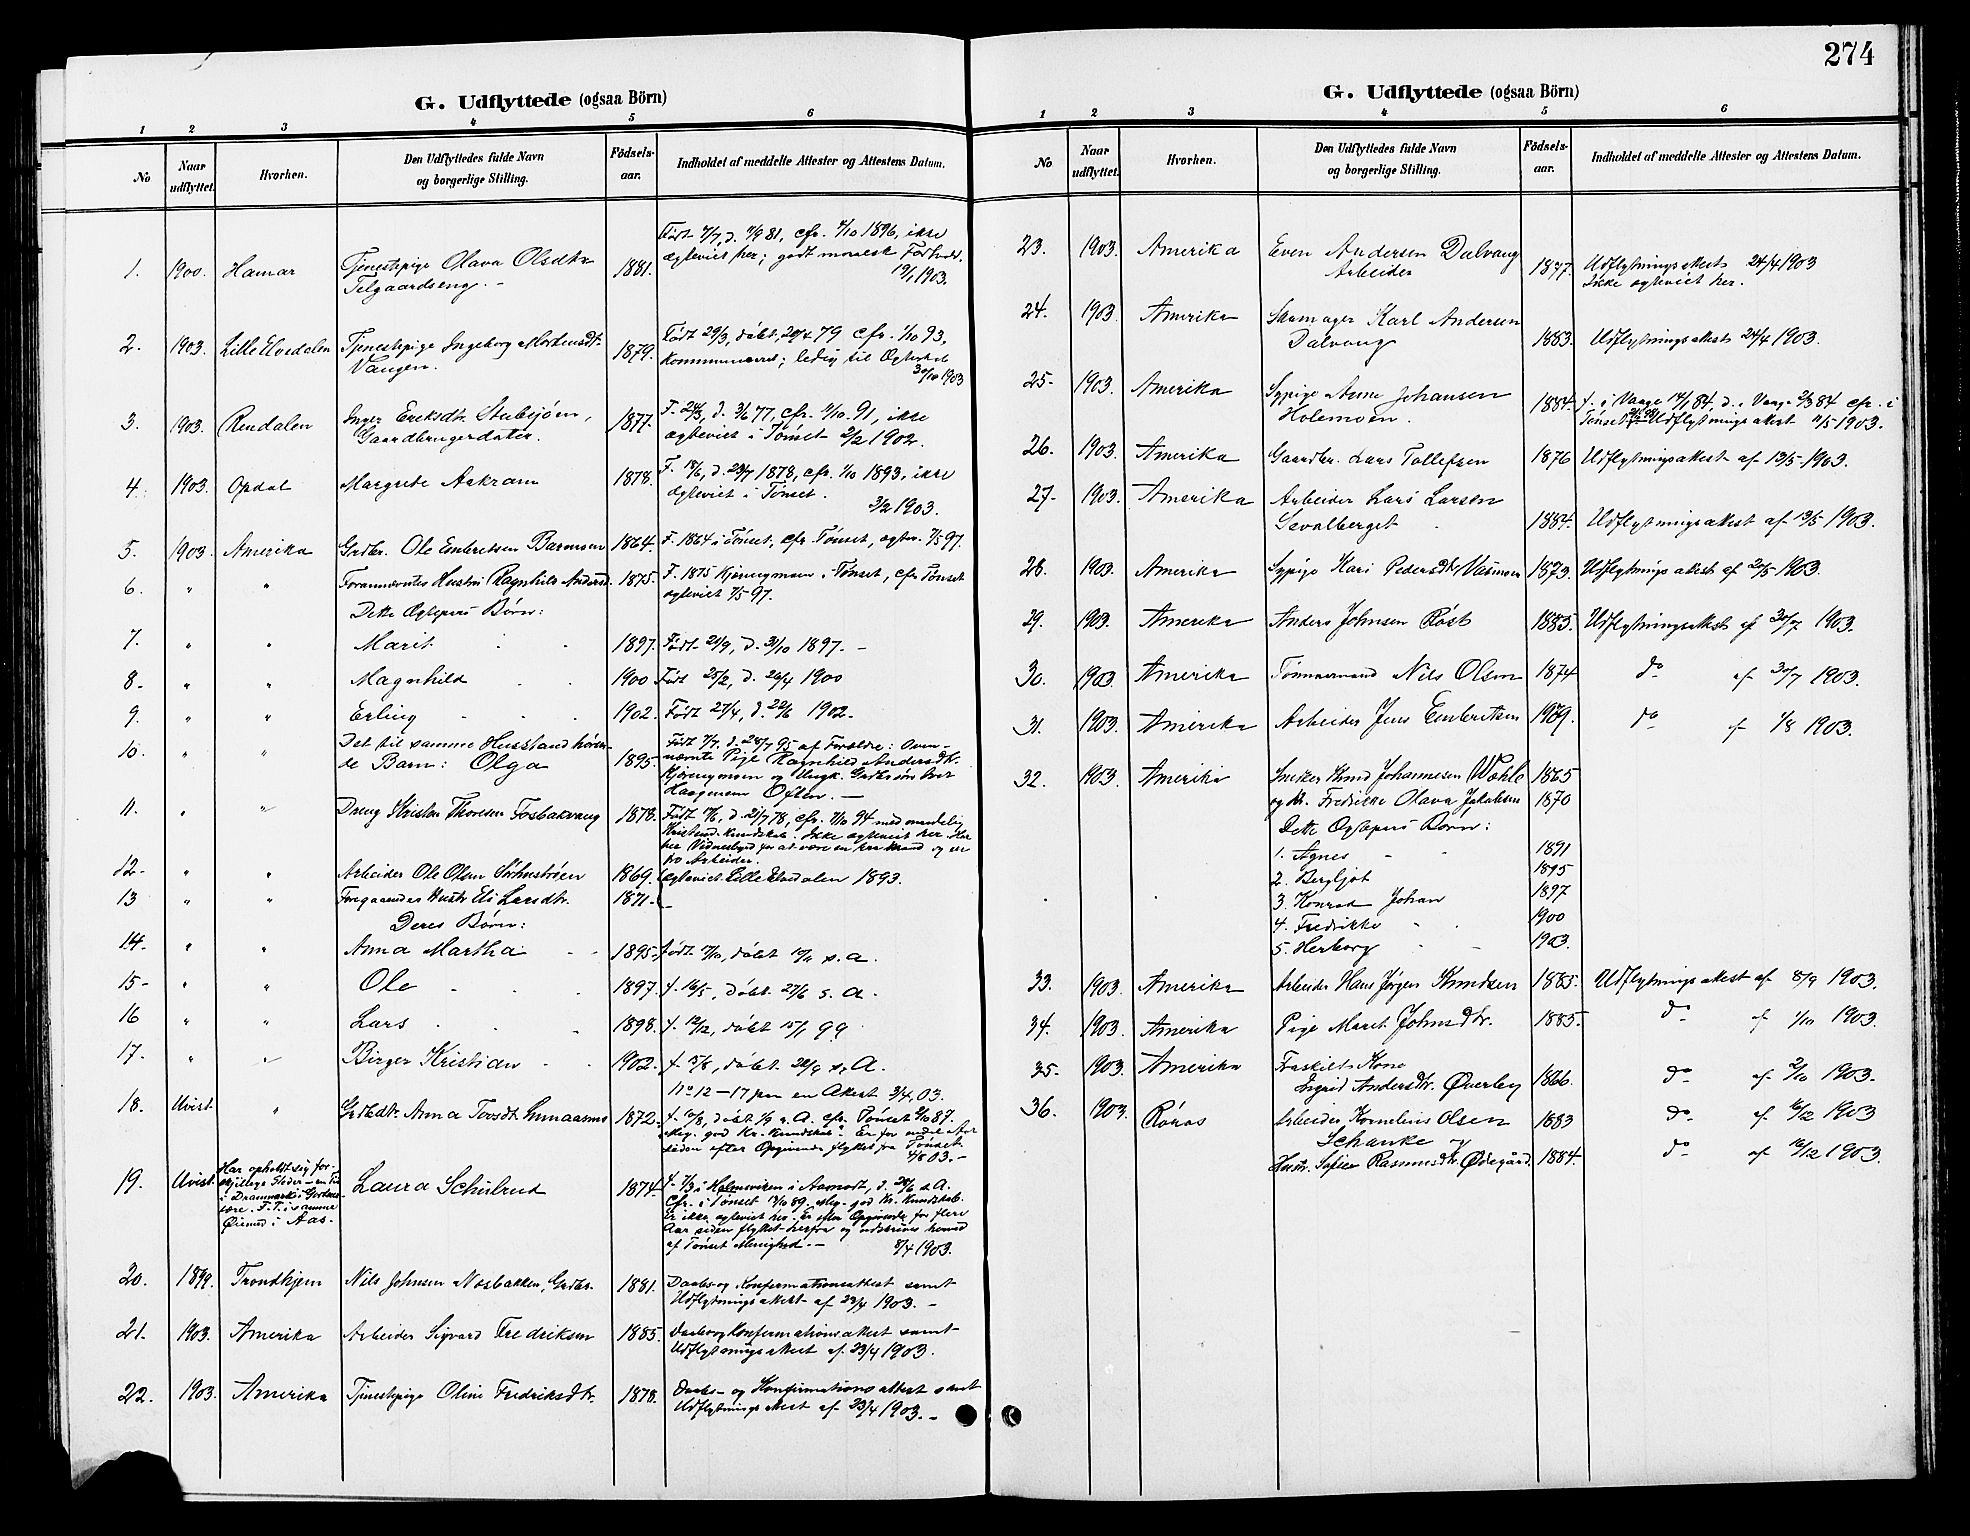 274
G. Udflyttede (ogsaa Börn)
1 2 3 4 5 6
No Naar udflyttet. Hvorhen. Den Udflyttedes fulde Navn og borgerlige Stilling. Födsels-aar. Indholdet af meddelte Attester og Attestens Datum.
1. 1900. Hamar Tjenestepige Olava Olsdtr. 1881. Født 7/7, d. 81, cfr. 1896, ikke
Telgaardseng. - ægteviet her; godt moralsk Forhold.
1903.
2. 1903. Lille Elvedalen Tjenestepige Ingeborg Mortensdt. 1879. Født 29/3, døbt 20/4 79 cfr. 1/10 93,
Vangen. ledig til Ægteskab
30/10 1903
3. 1903. Rendalen Inger Eriksdtr. Stubsjøen, 1877. F. d. 3/6 77, cfr. 91, ikke
Gaardbrugerdatter. ægteviet i Tønset 2/2 1902.
4. 1903. Opdal Margrete Aakram 1878. F. d. 23/7 1878, cfr. 1/10 1893, ikke
ægteviet i Tønset.
3/2 1903.
5. 1903. Amerika Grdbr. Ole Embretsen Barmoen 1864. F. 1864 i Tønset, cfr. Tønset, ægtev. 7/5 97.
6. " " Forannævntes Hustru Ragnhild Andersd. 1875. F. 1875 Kjørengmoen i Tønset, cfr. Tønset
ægteviet 7/5 97.
Dette Ægtepars Børn:
7. " " Marit 1897. Født 21/9, d. 31/10 1897. -
8. " " Magnhild 1900 Født 25/2, d. 20/4 1900
9. " " Erling 1902. Født 27/4, d. 22/6 1902.
10. " " Det til samme Husstand høren-
de Barn: Olga 1895. Født 7/7, d. 28/7 95 af Forældre: Oven-
nævnte Pige Ragnhild Andersdtr.
Kjørengmoen og Ungk.
11. " " Dreng Kristen Thoresen Fosbakvang 1878. Født d. 21/7 78, cfr. 7/10 94 med
Kristend. Kundskab. Ikke ægteviet her. Har
her Vidnesbyrd for at være en bra Mand og en
Arbeider.
12. " " Arbeider Ole Olsen 1869. ægteviet Lille Elvedalen 1893.
13 " " Foregaaendes Hustr. Eli Larsdtr. 1871. -
Deres Børn:
14. " " Anna Martha 1895. født døbt s.a.
15. " " Ole 1897. f. 16/5, døbt 27/6 s.A.
16 " " Lars 1898. f. 12/12, døbt 15/1 99.
17. " " Birger Kristian 1902. f. 15/8, døbt s.A.
No 12 - 17 paa en Attest 3/4, 03.
18. Uvist " Grdbdtr. Anna Toresdt. 1872. f. døbt 1/9 s.A. cfr. Tønset 87.
Meg. god Kr. Kundskab. Er for endel Aar
siden efter Opgivende flyttet fra Tønset.
4/8 03. -
19. Uvist Har opholdt sig for-
skjellige Steder
i Drammen
F. T. i samme
Øiemed i Aas.
Laura Schulrud 1874. f. 7/3 i Holmeviken i Aamodt, d. 24/6 s.A.
cfr. i Tønset 89. Meg. god Kr. Kundskab.
Er ikke ægteviet her. Er efter Opgivende for flere
Aar siden flyttet herfra og udskrives herved
af Tønset Menighed. - 8/4 1903.
20. 1899. Trondhjem Nils Johnsen Næsbakken, Grdbr. 1881. Daabs- og Konfirmationsattest samt
Udflytningsattest af 23/4 1903. -
21. 1903. Amerika Arbeider Sigvard Fredriksen 1885. Daab og Konfirmationsattest samt
Udflytningsattest af 23/4 1903.
22. 1903. Amerika Tjenestepige Oline Fredriksdtr. 1878. Daabs- og Konfirmationsattest samt
Udflytningsattest af 23/4 1903. -
G. Udflyttede (ogsaa Börn)
1 2 3 4 5 6
No Naar udflyttet. Hvorhen. Den Udflyttedes fulde Navn og borgerlige Stilling. Födsels-aar. Indholdet af meddelte Attester og Attestens Datum.
23. 1903. Amerika Even Andersen Dalvang
Arbeider 1877. Udflytningsattest 24/4 1903
Ikke ægteviet her.
24. 1903. Amerika Skomager Karl Andersen
Dalvang 1883. Udflytningsattest 24/4 1903.
25. 1903. Amerika Sypige Anne Johansen 1884. f. i Vaage 14/1 84, d. i Vaage 2/3 84 cfr. i
Holemoen. Tønset Udflytningsattest 1903.
26. 1903. Amerika Gaardbr. Lars Tollefsen 1876 Udflytningsattest af 13/5 1903.
27. 1903. Amerika Arbeider Lars Larsen
Savalberget 1884. Udflytningsattest af 13/5 1903.
28. 1903. Amerika Sypige Kari Pedersdtr. 1873. Udflytningsattest af 1903.
29. 1903. Amerika Anders Johnsen Røst 1885. Udflytningsattest af 30/7 1903.
30. 1903. Amerika Tømmermand Nils Olsen 1874 do af 30/7 1903.
31. 1903. Amerika Arbeider Jens Embretsen 1879. do af 1/8 1903.
32. 1903. Amerika Snekker Knud Johannesen Wæhle 1865
og Kr. Fredrikke Olava Jakobsen 1870
Dette Ægtepars Børn:
1. Agnes 1891
2. Bergljot 1895
3. Konrad Johan 1897
4. Fredrikke 1900
5. Herborg 1903.
33. 1903. Amerika Arbeider Hans Jørgen Knudsen 1885. Udflytningsattest af 8/9 1903.
34. 1903. Amerika Pige Marit Johnsdtr. 1885. do af 1/10 1903.
35. 1903. Amerika Fraskilt Kone
Ingrid Andersdtr. Øverby 1866. do af 2/10 1903.
36. 1903. Røros Arbeider Kornelius Olsen 1883 do af 16/12 1903
Schanke og
Hustr. Sofie Rasmusdtr. Ødegård. 1884. do af 16/12 1903.